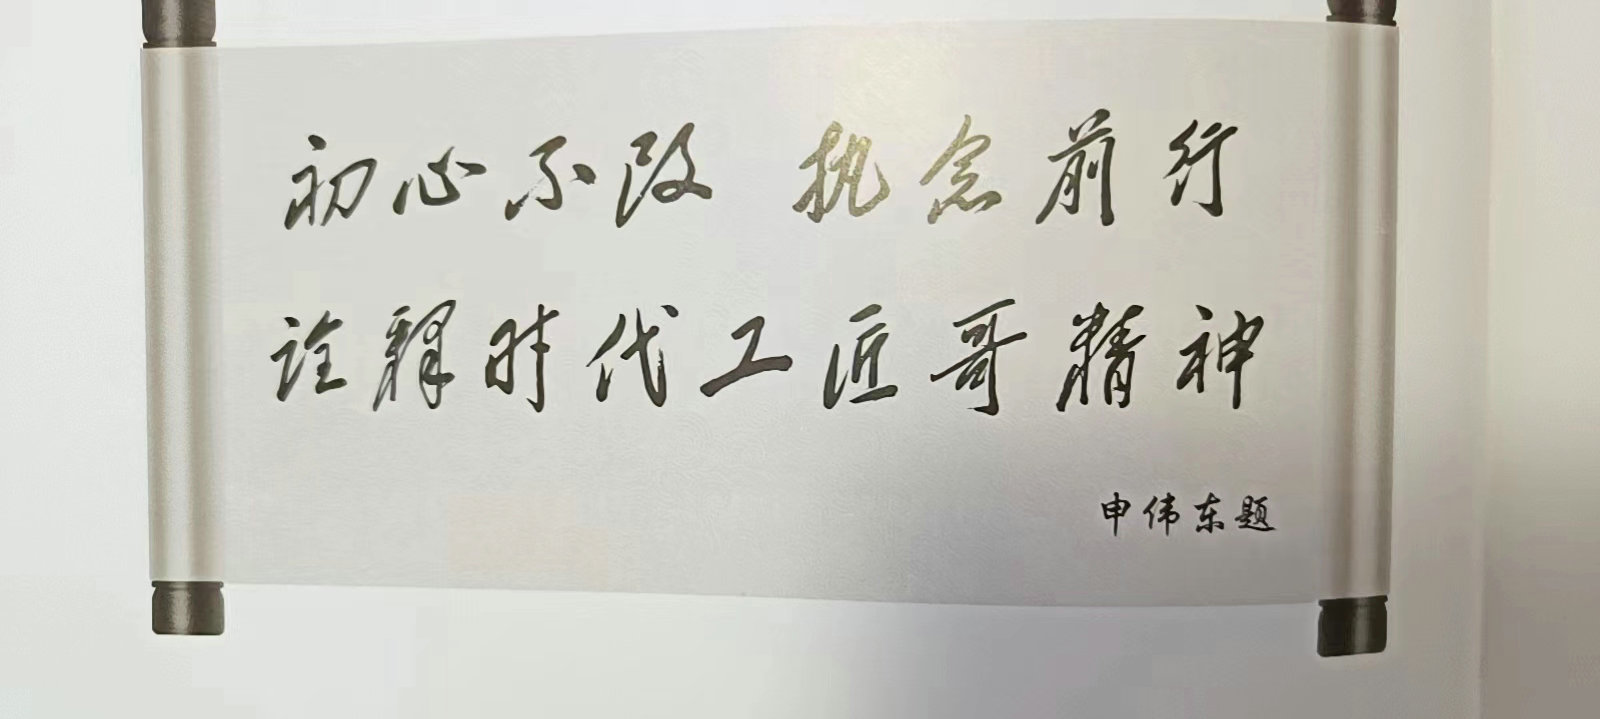 初心不改 执念前行
诠释时代工匠哥精神
申伟东题